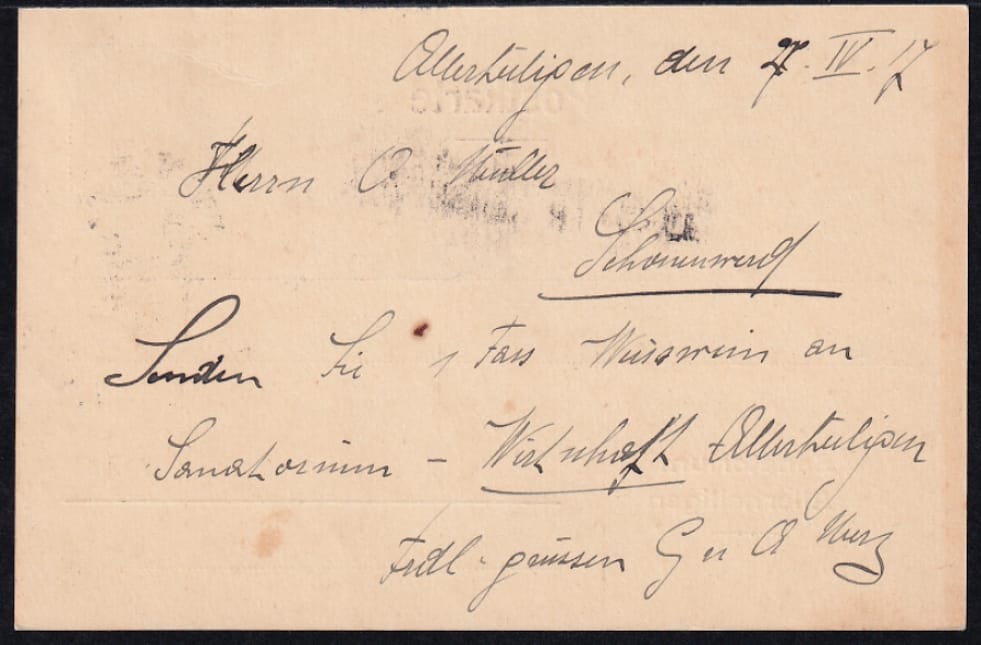 Allerheiligen, den 7. IV. 17
Herrn A Müller
Schönenwerd
Senden Sie 1 Fass Weisswein an
Sanatorium – Wirtschaft Allerheiligen
Frdl. grüssen G u A